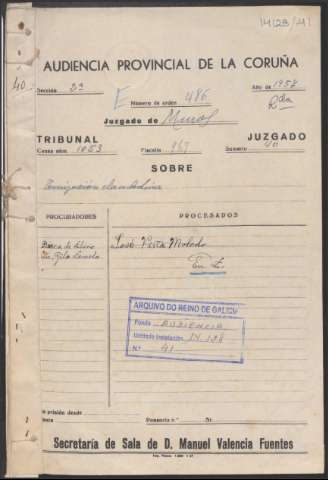 14128/41
AUDIENCIA PROVINCIAL DE LA CORUÑA
40
Sección 2ª Año de 1958
E Número de orden 486
Juzgado de Muros
TRIBUNAL JUZGADO
Causa núm. 1053 Fiscalía 967 Sumario 40
SOBRE
Emigración clandestina
PROCURADORES PROCESADOS
José
En L.
ARCHIVO DO REINO DE GALICIA
Fondo AUDIENCIA
Unidade instalación 14.128
N.º 41
En prisión desde Ponente n.º Sr.
Secretaría de Sala de D. Manuel Valencia Fuentes